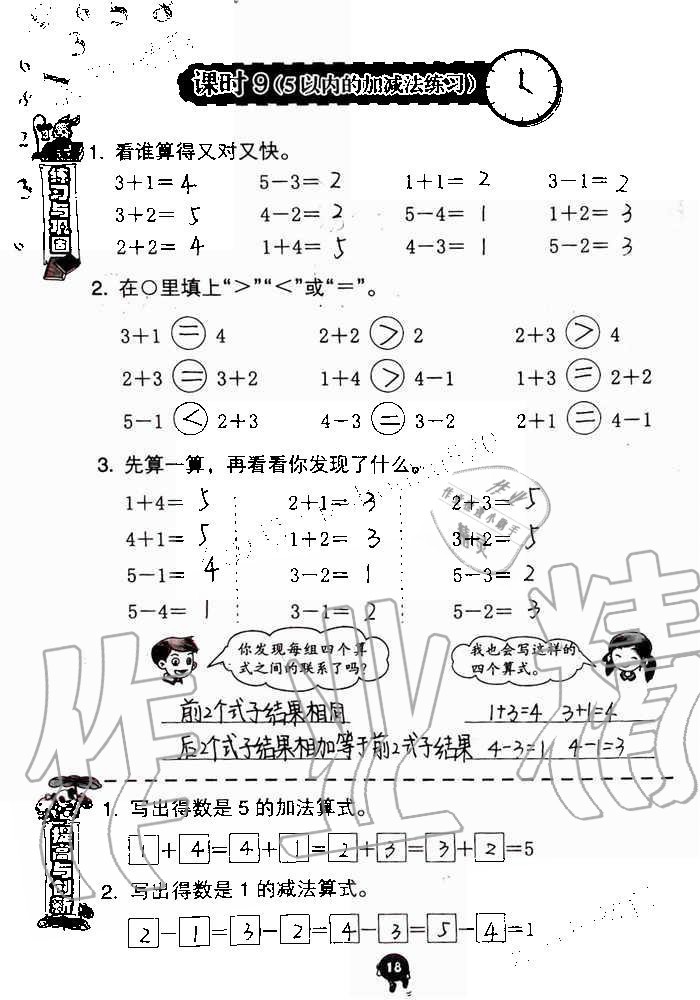 课时 9（5 以内的加减法练习）
练习与巩固
1. 看谁算得又对又快。
3+1=4 5-3=2 1+1=2 3-1=2
3+2=5 4-2=2 5-4=1 1+2=3
2+2=4 1+4=5 4-3=1 5-2=3
2. 在○里填上“>”“<”或“=”。
3+1=4 2+2>2 2+3>4
2+3=3+2 1+4>4-1 1+3=2+2
5-1<2+3 4-3=3-2 2+1=4-1
3. 先算一算，再看看你发现了什么。
1+4=5 2+1=3 2+3=5
4+1=5 1+2=3 3+2=5
5-1=4 3-2=1 5-3=2
5-4=1 3-1=2 5-2=3
你发现每组四个算
式之间的联系了吗？
我也会写这样的
四个算式。
前2个式子结果相同 1+3=4 3+1=4
后2个式子结果相加等于前2式子结果 4-3=1 4-1=3
提高与创新
1. 写出得数是 5 的加法算式。
1+4=4+1=2+3=3+2=5
2. 写出得数是 1 的减法算式。
2-1=3-2=4-3=5-4=1
18
作业精